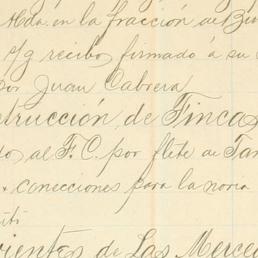 Hda. en la fracción de
S/g recibo firmado á su
por Juan Cabrera
trucción de Fincas
do al F. C. por flete de Tan
conecciones para la noria
ientes de Las Merce